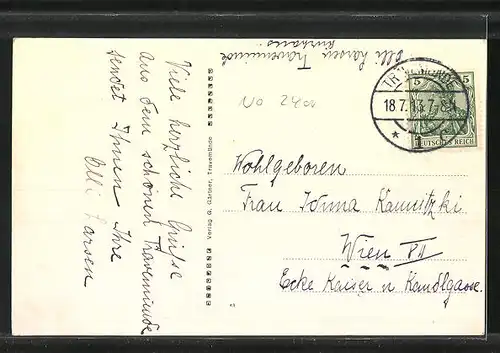 Olli Larsen Travemünde
Kurhaus.
Viele herzliche Grüße
aus dem schönen Travemünde
sendet Ihnen Ihre
Olli Larsen
Verlag G. Gärtner, Travemünde
No 2401
5 5
18.7.13.7-8N
DEUTSCHES REICH
Wohlgeboren
Frau Irma Kamnitzki
Wien VII
Ecke Kaiser u Kandlgasse.